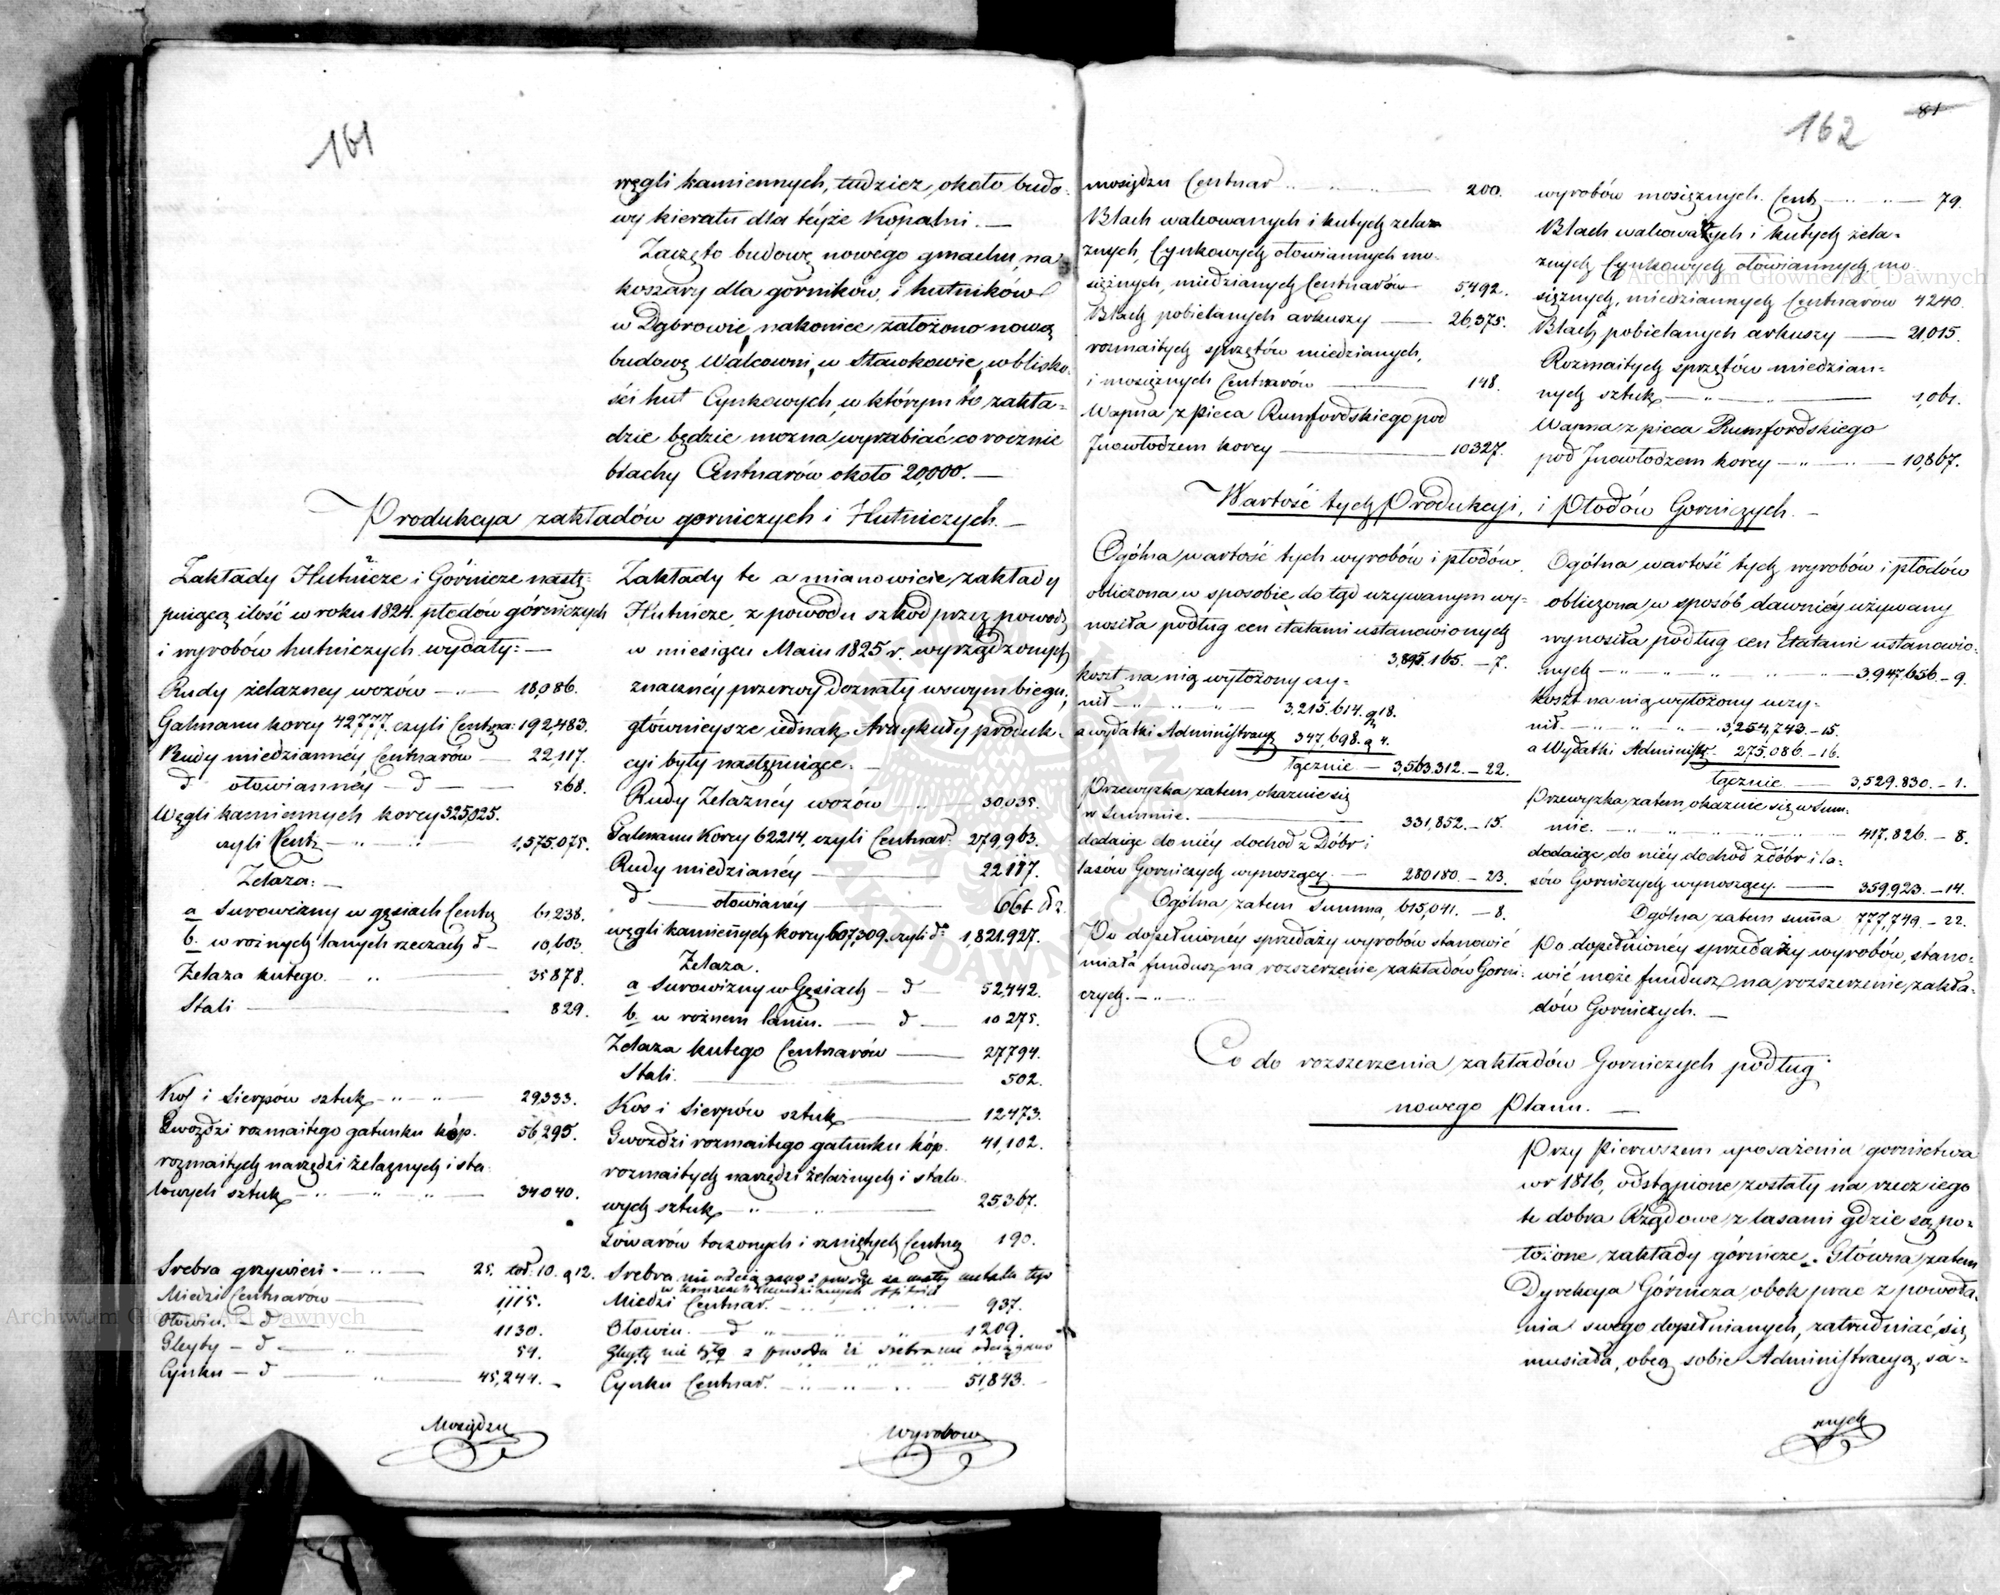 161
węgli kamiennych, tudziez około budo-
wy kieratu dla téyże Kopalni. —
Zaczęto budowę nowego gmachu, na
koszary dla górników i hutników
w Dąbrowie, nakoniec założono nową
budowę Walcowni, w Sławkowie, w blisko-
ści hut Cynkowych, w którym to zakła-
dzie będzie mozna wyrabiać co rocznie
blachy Centnarów około 20,000. —
Produkcya zakładów gorniczych i Hutniczych. —
Zakłady Hutnicze i Górnicze nastę-
puiącą ilość w roku 1824. płodów górniczych
i wyrobów hutniczych wydały: —
Rudy żelazney wozów — „ — 18,086.
Galmanu korcy 42777. czyli Centna: 192,483.
Rudy miedzianney Centnarów — 22,117.
d° ołowianney — d° — 568.
Węgli kamiennych korcy 525,025.
czyli Centr. — „ — „ 1,575,075.
Żelaza: —
a Surowizny w gęsiach Centr. 61,238.
b. w rożnych lanych rzeczach d° — 10,603.
Żelaza kutego. — „ — 35878.
Stali — 829.
Kos i Sierpów sztuk — „ — „ — 29,333.
Gwozdzi rozmaitego gatunku kóp. 56,295.
rozmaitych narzędzi żelaznych i sta-
lowych sztuk — „ — „ — „ — 34040.
Srebra grzywień — „ — 25. łot. 10. q 12.
Miedzi Centnarow — 1,115.
Ołowiu. — d° — 1130.
Gleyty — d° — „ — 54.
Cynku — d° — „ — 45,244. —
Mosiądzu
Zakłady te a mianowicie zakłady
Hutnicze, z powodu szkod przez powodź
w miesiącu Maiu 1825 r. wyrządzonych
znacznéy przerwy doznały w swym biegu,
głównieysze iednak Artykuły produk-
cyi były następuiące. —
Rudy Żelaznéy wozów — 30035.
Galmanu Korcy 62214. czyli Centnar. 279,963.
Rudy miedzianéy — 22117.
d° — ołowianéy — 661
węgli kamieñych korcy 607,309. czyli d° 1,821.927.
Żelaza.
a Surowizny w Gęsiach — d° — 52,442.
b. w rożnem laniu. — d° — 10275.
Żelaza kutego Centnarów — 27794.
Stali. — 502.
Kos i Sierpów sztuk — 12473.
Gwozdzi rozmaitego gatunku kóp. 41,102.
rozmaitych narzędzi żelaznych i stalo-
wych sztuk — „ — 25,367.
Towarów toczonych i rzniętych Centnr 190.
Srebra nie odciągano z powodu że metale tego
Miedzi Centnar. — „ — „ — 937.
Ołowiu. — d° „ — „ — 1209.
Gleyty nie było z powodu iż srebra nie odciągano
Cynku Centnar. — „ — „ — 51,843. —
wyrobow
162
81
mosiądzu Centnar — 200.
Blach walcowanych i kutych żela-
znych, Cynkowych ołowiannych mo-
siężnych, miedzianych Centnarów — 5,492.
Blach pobielanych arkuszy — 26,375.
rozmaitych sprzętów miedzianych,
i mosiężnych Centnarów — 148.
Wapna z pieca Rumfordskiego pod
Inowłodzem korcy — 10327.
wyrobów mosiężnych. Centr — „ — 79.
Blach walcowanych i kutych żela-
znych Cynkowych ołowiannych mo-
siężnych, miedziannych Centnarów 4240.
Blach pobielanych arkuszy — 21,015.
Rozmaitych sprzętów miedzian-
nych sztuk — „ — 1,061.
Wapna z pieca Rumfordskiego
pod Inowłodzem korcy — „ — 10,867.
Wartość tych Produkcyi, i Płodów Gorniczych. —
Ogólna wartość tych wyrobów i płodów
obliczona w sposobie do tąd uzywanym wy-
nosiła podług cen etatami ustanowionych
3,895.165. — 7.
koszt na nią wyłożony czy-
nił — „ — „ — 3,215.614. q 18.
a wydatki Administracyi 347,698. q 4.
łącznie — 3,563.312. — 22.
Przewyzka zatem okazuie się
w Summie. — 331,852. — 15.
dodaiąc do niéy dochod z Dóbr i
lasów Gorniczych wynoszący. — 280180. — 23.
Ogólna zatem Summa 615,041. — 8.
Po dopełnionéy sprzedaży wyrobów stanowić
miała fundusz na rozszerzenie zakładów Gorni-
czych. — „ —
Ogólna wartość tych wyrobów i płodów
obliczona w sposób dawniéy używany
wynosiła podług cen Etatami ustanowio-
nych — „ — 3,947.656. — 9.
koszt na nią wyłożony uczy-
nił — „ — „ — 3,254,743. — 15.
a Wydatki Administr. 275.086. — 16.
łącznie — 3,529.830. — 1.
Przewyzka zatem okazuie się w Sum-
mie. — „ — 417.826. — 8.
dodaiąc do niéy dochod z dóbr i la-
sów Gorniczych wynoszący. — 359,923. — 14.
Ogólna zatem suma 777,749. — 22.
Po dopełnionéy sprzedaży wyrobów, stano-
wić może fundusz na rozszerzenie zakła-
dów Gorniczych. —
Co do rozszerzenia zakładów Gorniczych podług
nowego Planu. —
Przy pierwszem uposażeniu gornictwa
w r 1816, odstąpione zostały na rzecz iego
te dobra Rządowe z lasami gdzie są po-
łożone zakłady górnicze. Główna zatem
Dyrekcya Górnicza obok prac z powoła-
nia swego dopełnianych, zatrudniać się
musiała, obcą sobie Administracyą, sa-
mych
Archiwum Główne Akt Dawnych
Archiwum Główne Akt Dawnych